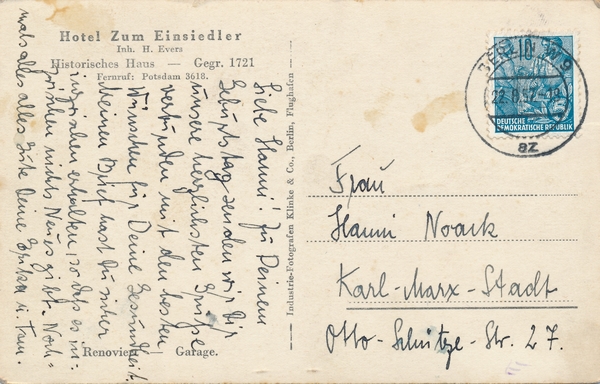 Hotel Zum Einsiedler
Inh. H. Evers
Historisches Haus — Gegr. 1721
Fernruf: Potsdam 3618.
Liebe Hanni! Zu Deinem
Geburtstag senden wir Dir
unsere herzlichsten Grüße
verbunden mit den besten
Wünschen für Deine Gesundheit.
Meinen Brief hast Du sicher
inzwischen erhalten, so daß es in-
zwischen nichts Neues gibt. Noch-
mals alles alles Gute Deine Erika u. Fam.
Renoviert Garage.
Industrie-Fotografen Klinke & Co., Berlin, Flughafen
10
DEUTSCHE
DEMOKRATISCHE REPUBLIK
az
Frau
Hanni Noack
Karl-Marx-Stadt
Otto-Schütze-Str. 27.